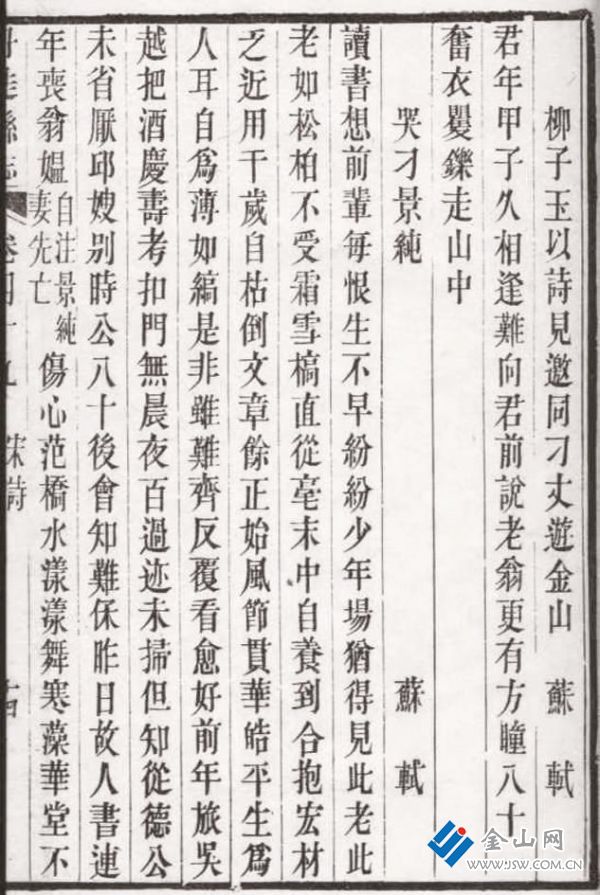 柳子玉以詩見邀同刁丈遊金山 蘇軾
君年甲子久相逢難向君前說老翁更有方瞳八十
奮衣矍鑠走山中
哭刁景純 蘇軾
讀書想前輩每恨生不早紛紛少年場猶得見此老此
老如松柏不受霜雪槁直從毫末中自養到合抱宏材
乏近用千歲自枯倒文章餘正始風節貫華皓平生爲
人耳自爲薄如縞是非雖難齊反覆看愈好前年旅吳
越把酒慶壽考扣門無晨夜百過迹未掃但知從德公
未省厭邱嫂別時公八十後會知難保昨日故人書連
年喪翁媼自注景純妻先亡傷心范橋水漾漾舞寒藻華堂不
縣志 卷四十九 宋詩 十四
金山网
WWW.JSW.COM.CN